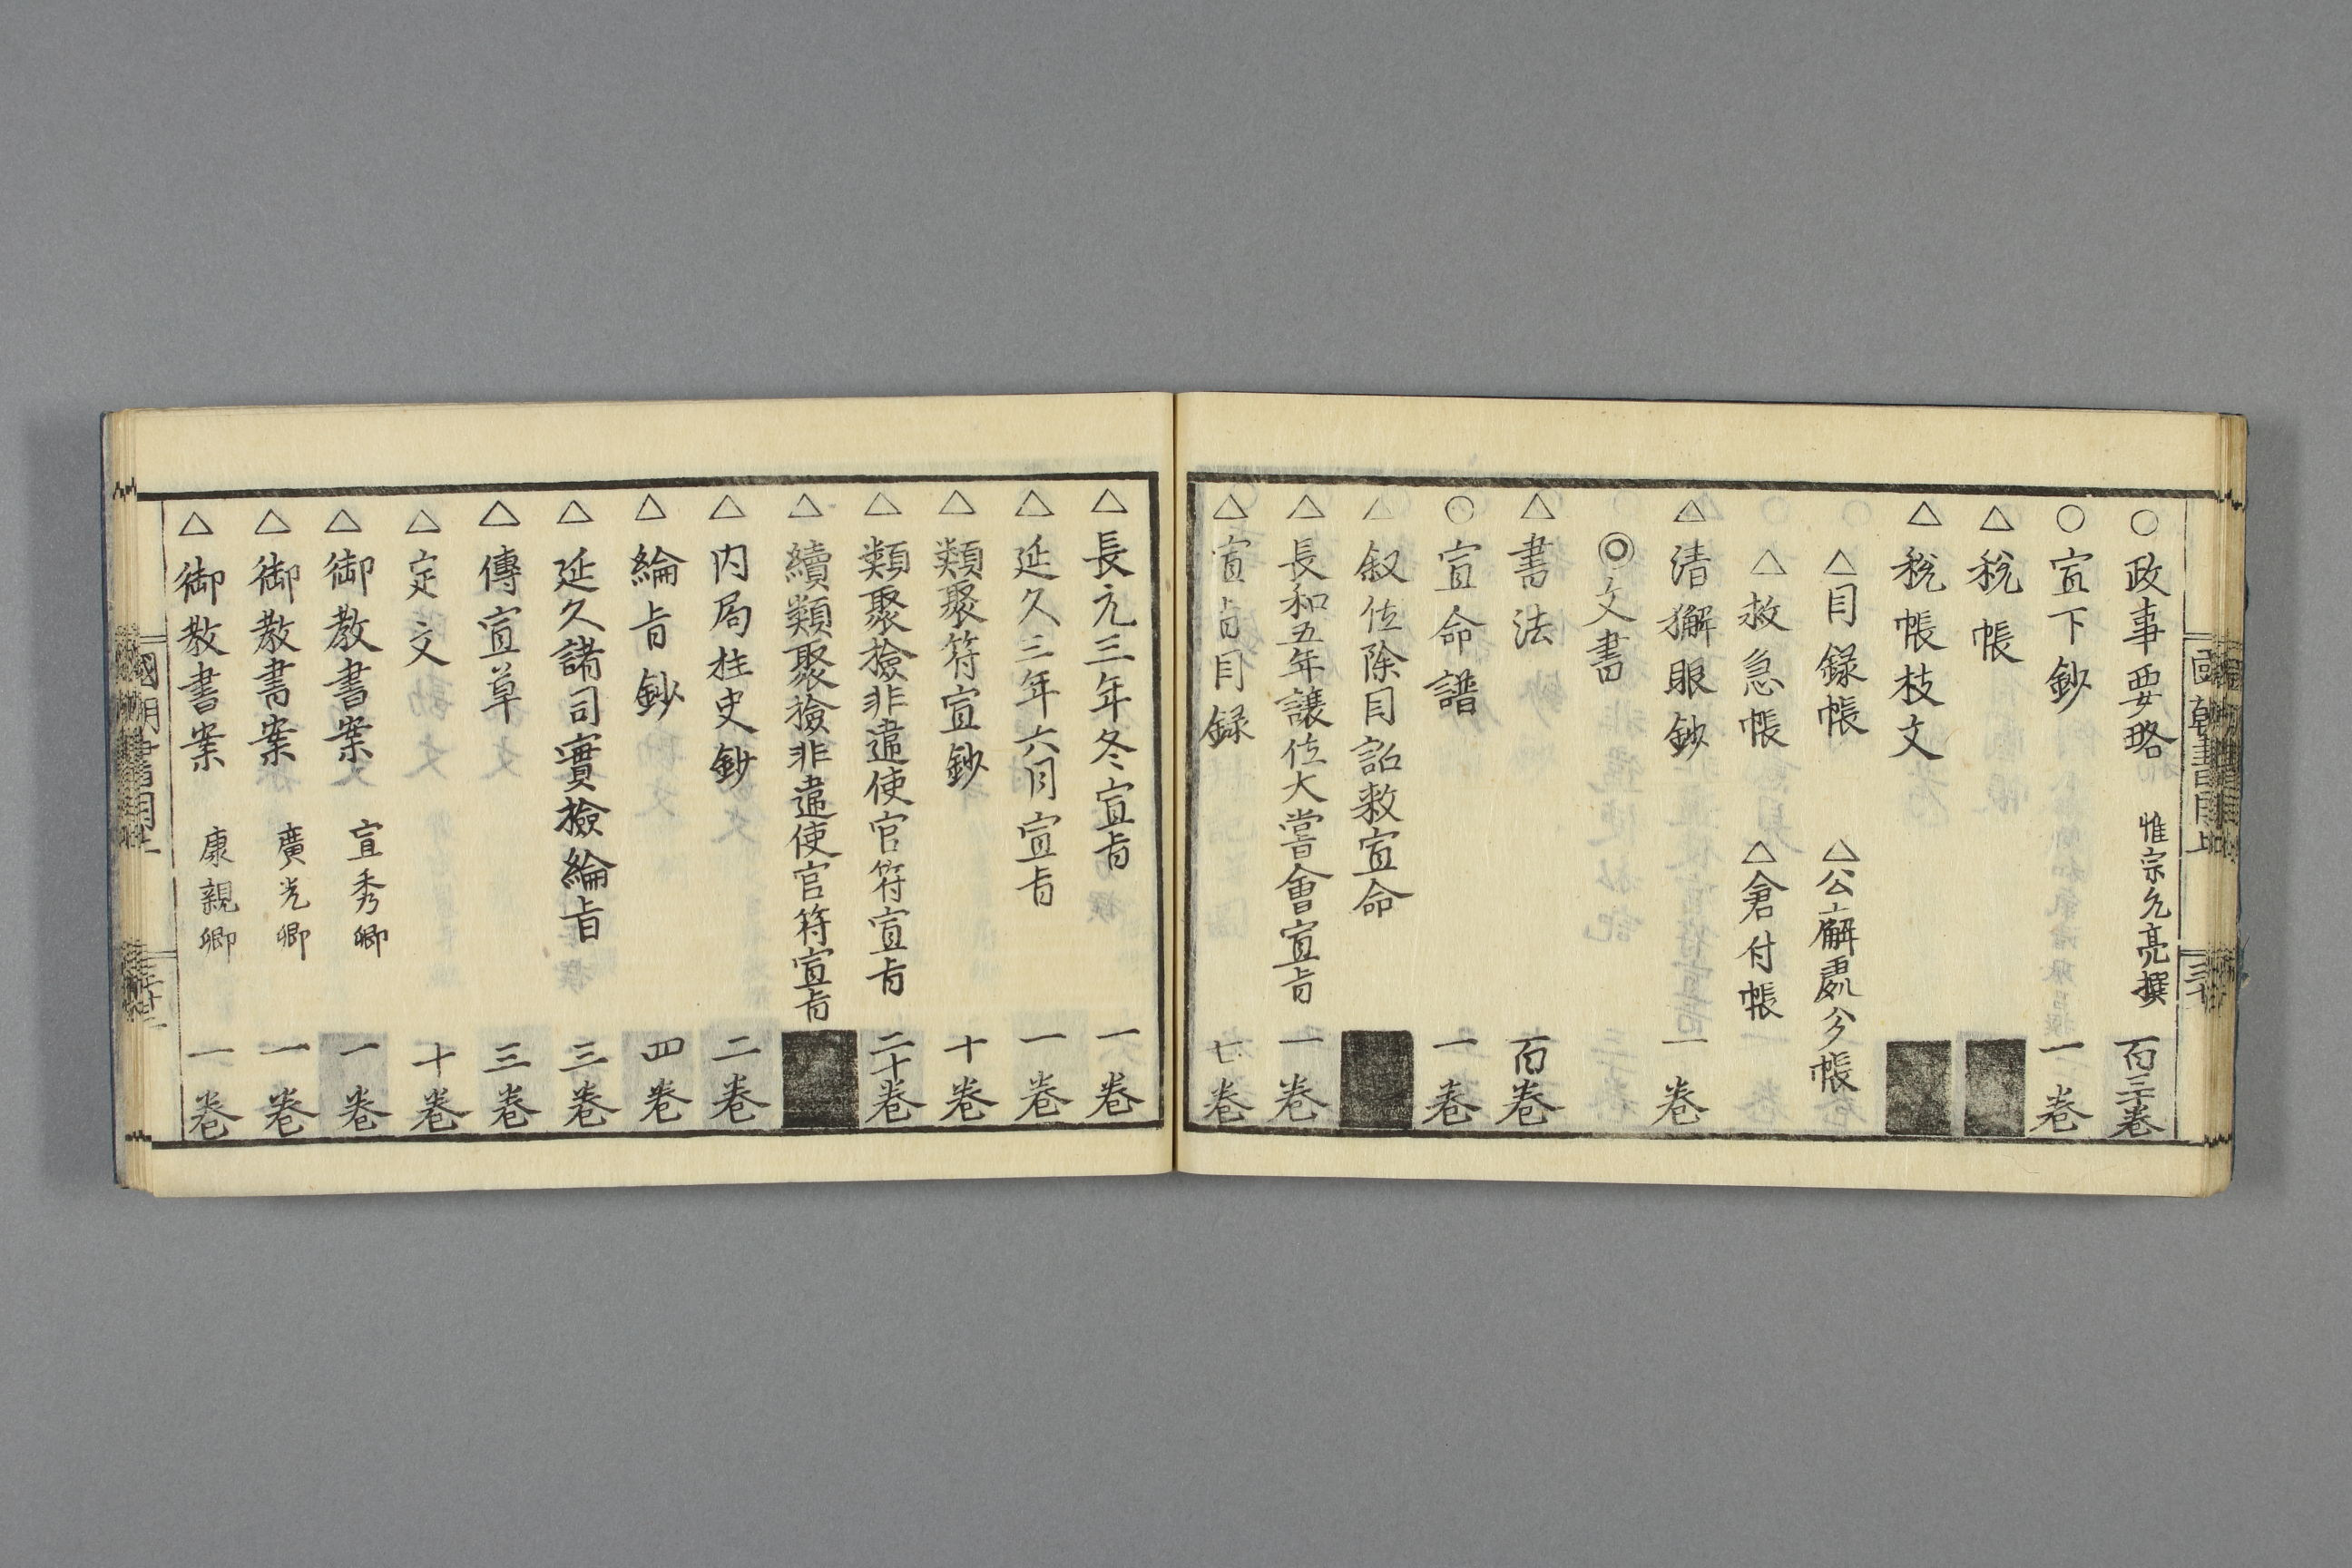 ○政事要略 惟宗允亮撰 百三十卷
○宣下鈔 一卷
△税帳
△税帳枝文
△目録帳 △公廨處分帳
△救急帳 △倉付帳
△清獬眼鈔 一卷
◎文書
△書法 百卷
○宣命譜 一卷
△叙位除目詔敕宣命
△長和五年讓位大嘗會宣旨 一卷
△宣旨目録 七卷
△長元三年冬宣旨 一卷
△延久三年六月宣旨 一卷
△類聚符宣鈔 十卷
△類聚撿非違使官符宣旨 二十卷
△續類聚撿非違使官符宣旨
△内局柱史鈔 二卷
△綸旨鈔 四卷
△延久諸司實撿綸旨 三卷
△傳宣草 三卷
△定文 十卷
△御教書案 宣秀卿 一卷
△御教書案 廣光卿 一卷
△御教書案 康親卿 一卷